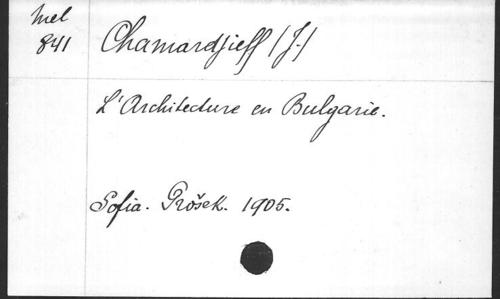 Mel
841
Chamardjieff (J.)
L'Architecture en Bulgarie.
Sofia. Prošek. 1905.